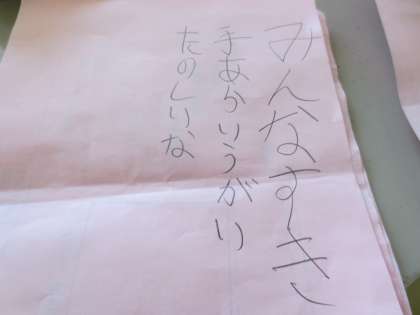 みんなすき
手あらいうがい
たのしいな